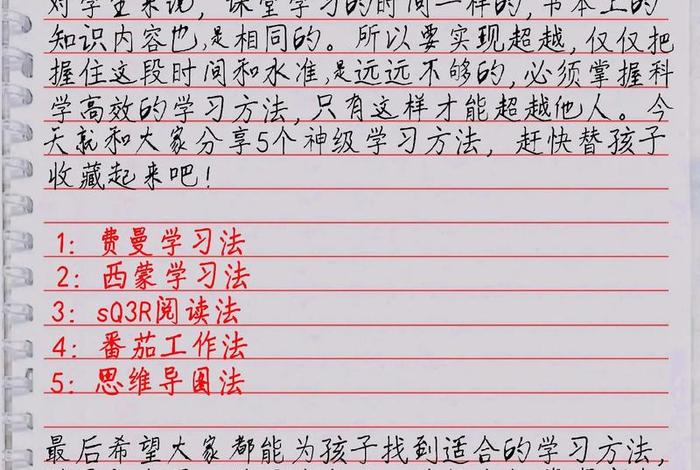 对学生来说，课堂学习的时间一样的，书本上的
知识内容也是相同的。所以要实现超越，仅仅把
握住这段时间和水准，是远远不够的，必须掌握科
学高效的学习方法，只有这样才能超越他人。今
天就和大家分享5个神级学习方法，赶快替孩子
收藏起来吧！
1：费曼学习法
2：西蒙学习法
3：sQ3R阅读法
4：番茄工作法
5：思维导图法
最后希望大家都能为孩子找到适合的学习方法，